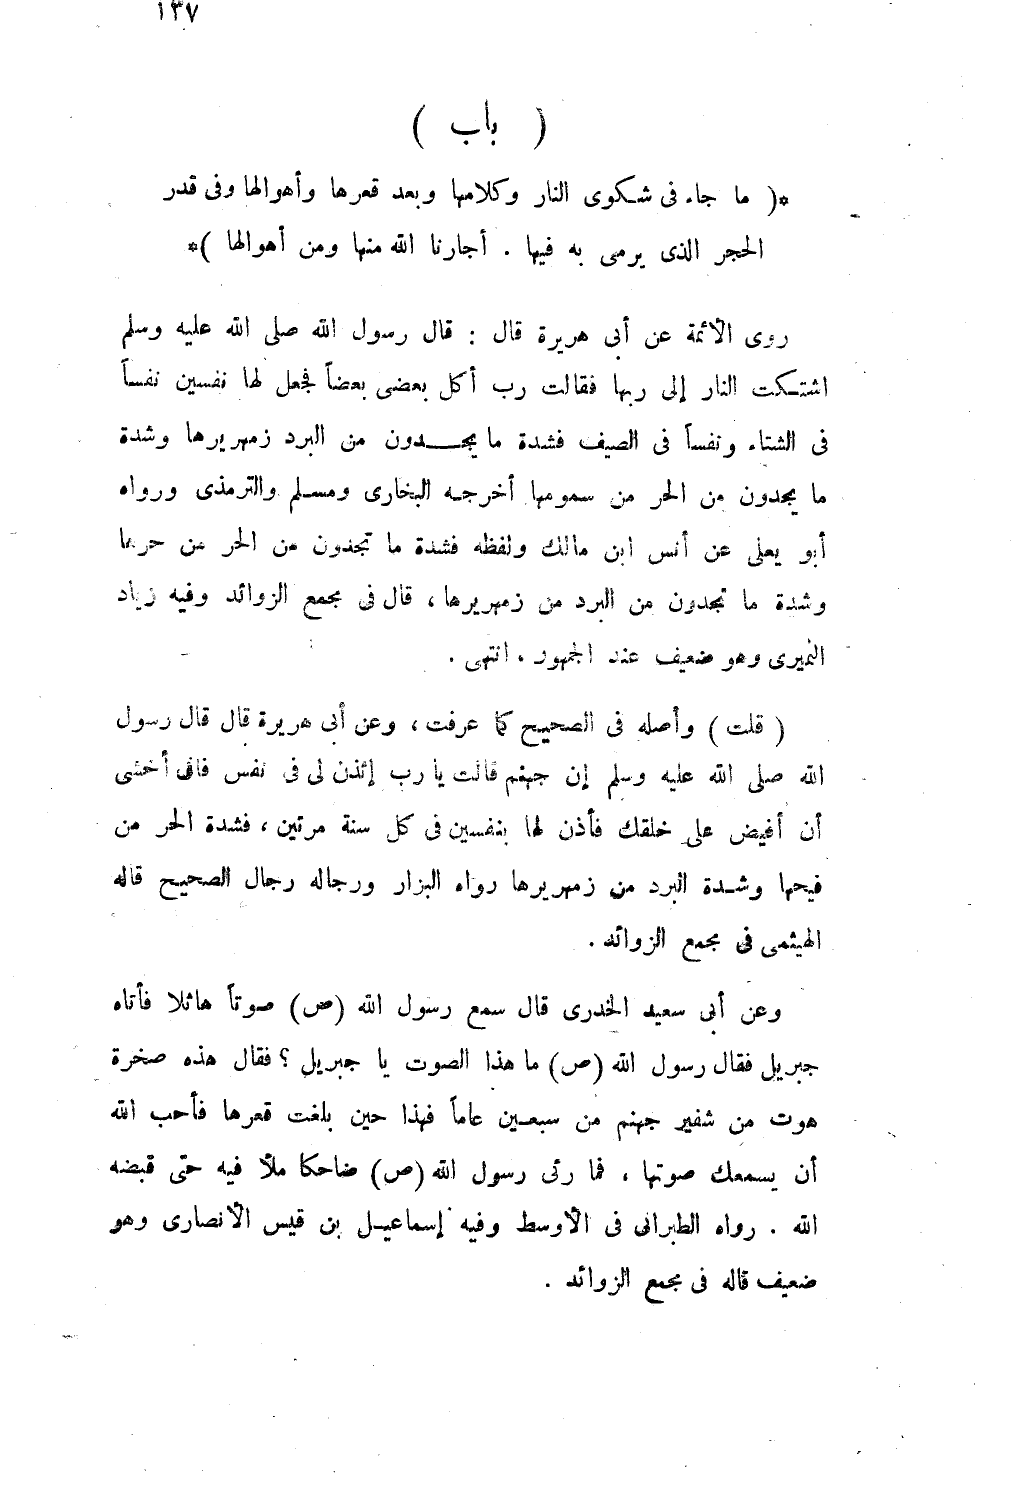 ١٣٧
( باب )
*( ما جاء فى شكوى النار وكلامها وبعد قعرها وأهوالها وفى قدر
الحجر الذى يرمى به فيها . أجارنا الله منها ومن أهوالها )*
روى الأئمة عن أبى هريرة قال : قال رسول الله صلى الله عليه وسلم
اشتكت النار إلى ربها فقالت رب أكل بعضى بعضاً فجعل لها نفسين نفساً
فى الشتاء ونفساً فى الصيف فشدة ما يجدون من البرد زمهريرها وشدة
ما يجدون من الحر من سمومها أخرجه البخارى ومسلم والترمذى ورواه
أبو يعلى عن أنس ابن مالك ولفظه فشدة ما تجدون من الحر من حرها
وشدة ما تجدون من البرد من زمهريرها ، قال فى مجمع الزوائد وفيه زياد
النميرى وهو ضعيف عند الجمهور ، انتهى .
( قلت ) وأصله فى الصحيح كما عرفت ، وعن أبى هريرة قال قال رسول
الله صلى الله عليه وسلم إن جهنم قالت يا رب إئذن لى فى نفس فانى أخشى
أن أفيض على خلقك فأذن لها بنفسين فى كل سنة مرتين ، فشدة الحر من
فيحها وشدة البرد من زمهريرها رواه البزار ورجاله رجال الصحيح قاله
الهيثمى فى مجمع الزوائد .
وعن أبى سعيد الخدرى قال سمع رسول الله (ص) صوتاً هائلا فأتاه
جبريل فقال رسول الله (ص) ما هذا الصوت يا جبريل ؟ فقال هذه صخرة
هوت من شفير جهنم من سبعين عاماً فهذا حين بلغت قعرها فأحب الله
أن يسمعك صوتها ، فما رئى رسول الله (ص) ضاحكا ملأ فيه حتى قبضه
الله . رواه الطبرانى فى الأوسط وفيه إسماعيل بن قيس الأنصارى وهو
ضعيف قاله فى مجمع الزوائد .